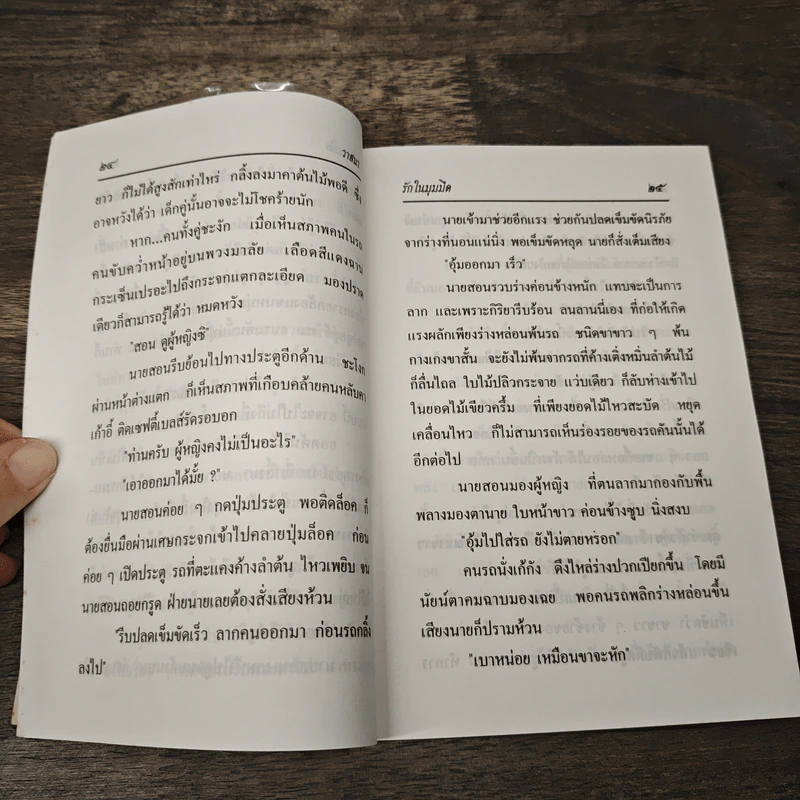 ๒๔ วาสนา
ยาว ก็ไม่ได้สูงสักเท่าไหร่ กลิ้งลงมาคาต้นไม้พอดี ซึ่ง
อาจหวังได้ว่า เด็กคู่นั้นอาจจะไม่โชคร้ายนัก
หาก...คนทั้งคู่ชะงัก เมื่อเห็นสภาพคนในรถ
คนขับคว่ำหน้าอยู่บนพวงมาลัย เลือดสีแดงฉาน
กระเซ็นเปรอะไปถึงกระจกแตกละเอียด มองปราด
เดียวก็สามารถรู้ได้ว่า หมดหวัง
"สอน ดูผู้หญิงซิ"
นายสอนรีบย้อนไปทางประตูอีกด้าน ชะโงก
ผ่านหน้าต่างแตก ก็เห็นสภาพที่เกือบคล้ายคนหลับคา
เก้าอี้ ติดเซฟตี้เบลส์รัดรอบอก
"ท่านครับ ผู้หญิงคงไม่เป็นอะไร"
"เอาออกมาได้มั้ย ?"
นายสอนค่อย ๆ กดปุ่มประตู พอติดล็อค ก็
ต้องยื่นมือผ่านเศษกระจกเข้าไปคลายปุ่มล็อค ก่อน
ค่อย ๆ เปิดประตู รถที่ตะแคงค้างลำต้น ไหวเพยิบ จน
นายสอนถอยกรูด ฝ่ายนายเลยต้องสั่งเสียงห้วน
"รีบปลดเข็มขัดเร็ว ลากคนออกมา ก่อนรถกลิ้ง
ลงไป"
รักในมุมมืด ๒๕
นายเข้ามาช่วยอีกแรง ช่วยกันปลดเข็มขัดนิรภัย
จากร่างที่นอนแน่นิ่ง พอเข็มขัดหลุด นายก็สั่งเต็มเสียง
"อุ้มออกมา เร็ว"
นายสอนรวบร่างค่อนข้างหนัก แทบจะเป็นการ
ลาก และเพราะกิริยารีบร้อน ลนลานนี่เอง ที่ก่อให้เกิด
แรงผลักเพียงร่างหล่อนพ้นรถ ชนิดขาขาว ๆ พ้น
กางเกงขาสั้น จะยังไม่พ้นจากรถที่ค้างติ่งหมิ่นลำต้นไม้
ก็ลื่นไถล ใบไม้ปลิวกระจาย แว่บเดียว ก็ลับห่างเข้าไป
ในยอดไม้เขียวครึ้ม ที่เพียงยอดไม้ไหวสะบัด หยุด
เคลื่อนไหว ก็ไม่สามารถเห็นร่องรอยของรถคันนั้นได้
อีกต่อไป
นายสอนมองผู้หญิง ที่ตนลากมากองกับพื้น
พลางมองตานาย ใบหน้าขาว ค่อนข้างซูบ นิ่งสงบ
"อุ้มไปใส่รถ ยังไม่ตายหร่อก"
คนรถนั่งเก้กัง ดึงไหล่ร่างปวกเปียกขึ้น โดยมี
นัยน์ตาคมฉาบมองเฉย พอคนรถพลิกร่างหล่อนขึ้น
เสียงนายก็ปรามห้วน
"เบาหน่อย เหมือนขาจะหัก"